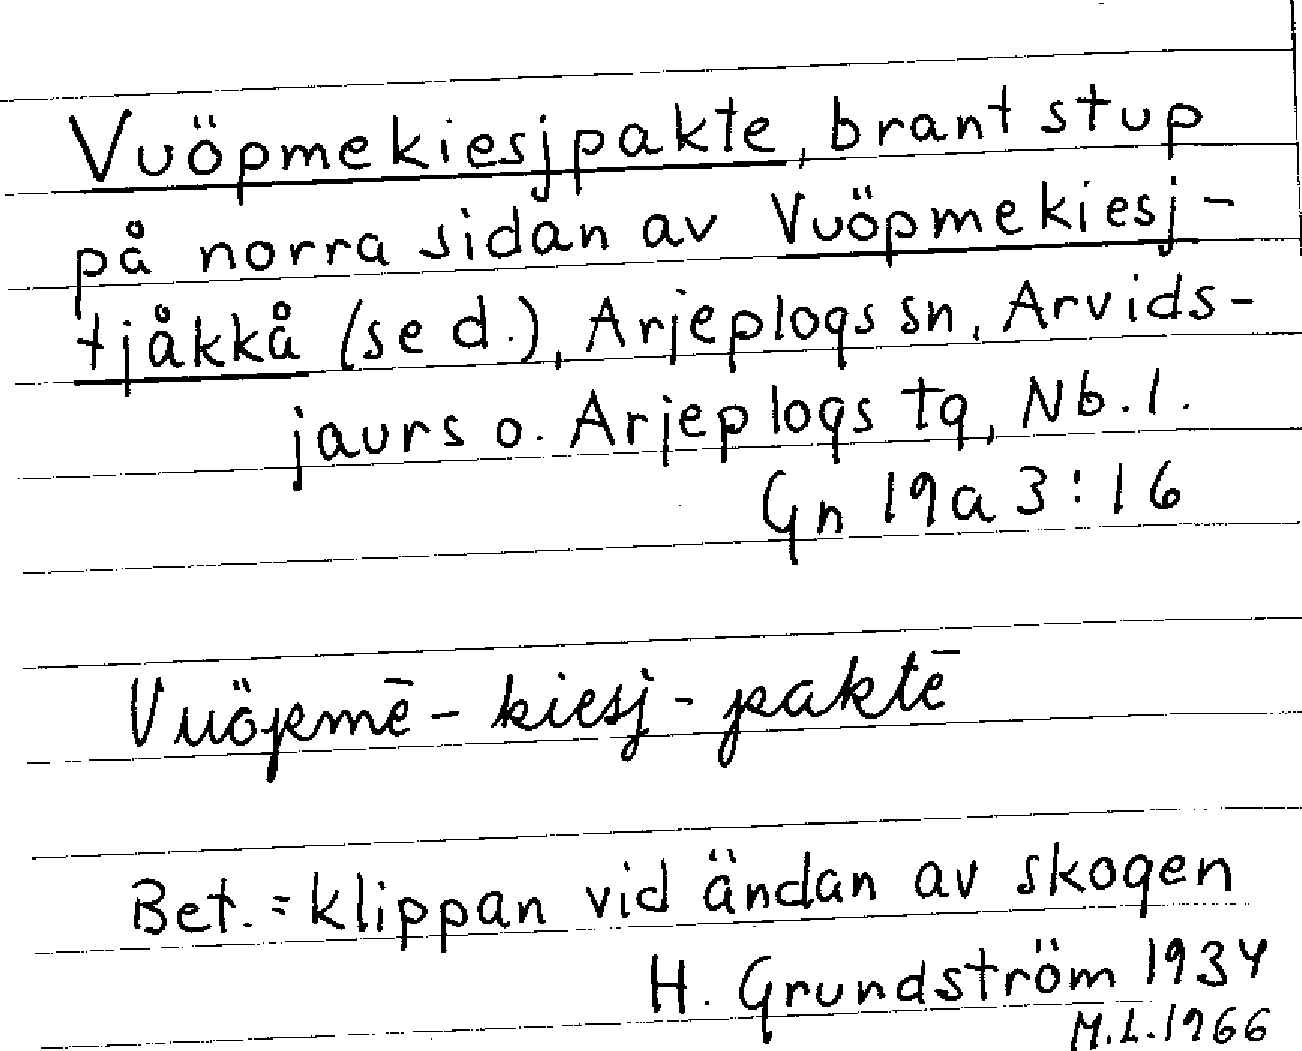 Vuöpmekiesjpakte, brant stup
på norra sidan av Vuöpmekiesj-
tjåkkå (se d.), Arjeplogs sn, Arvids-
jaurs o. Arjeplogs tg, Nb. l.
Gn 19a 3:16
Vuöpmē - kiesj - paktē
Bet. = klippan vid ändan av skogen
H. Grundström 1934
M.L. 1966